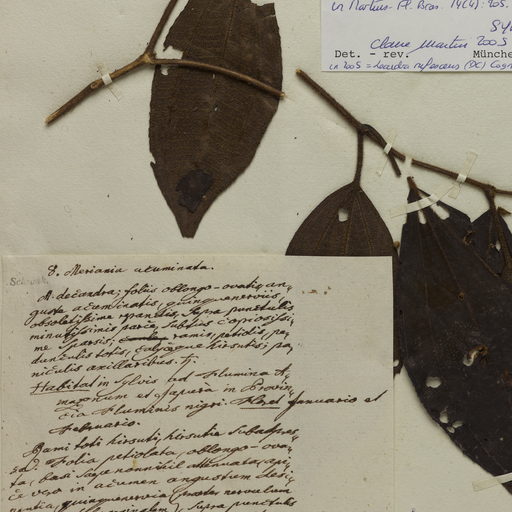 in Martius Fl. Bras. 14(4): 205.
SY
Claire Martin 2005
Det. - rev. Münche
in 2005 = Leandra rufescens (DC) Cogn
8. Meriania acuminata.
M. decandra; foliis oblongo-ovatis an=
guste acuminatis, quinquenerviis
obsoletissime supra punctulis
minutissimis parce, subtus copiosissi=
me sparsis, ramis petiolis, pe=
dunculis totis, calyceque hirsutis; pa=
niculis axillaribus. ♄.
Habitat in sylvis ad Flumina A=
mazonum et Japura in Provin=
cia Fluminis nigri. Floret Januario et
Februario.
Rami toti hirsuti, hirsutie subadpres=
sa. Folia petiolata, oblongo-ova=
ta, basi attenuata, api=
ce vero in acumen angustum desi=
nentia, quinquenervia nervulum
supra punctulis